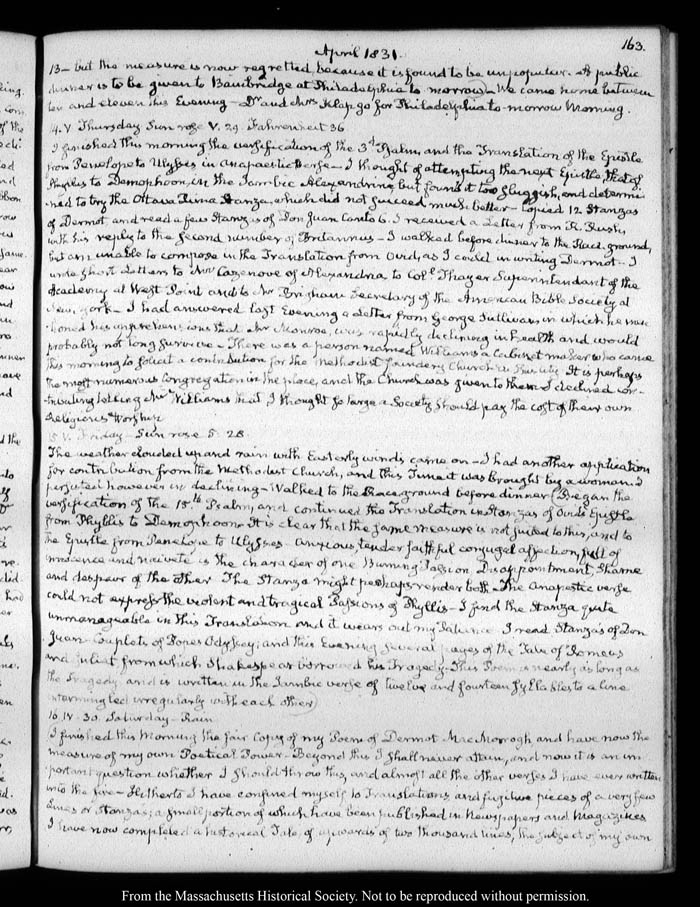 163.
April 1831.
13 — but the measure is now regretted, because it is found to be unpopular. A public
dinner is to be given to Bainbridge at Philadelphia to morrow — We came home between
ten and eleven this Evening — Dr and Mrs Klapp go for Philadelphia to-morrow Morning.
14. V. Thursday Sun rose V. 29 Fahrenheit 36
I finished this morning the versification of the 3d Psalm, and the Translation of the Epistle
from Penelope to Ulysses in anapaestic verse — I thought of attempting the next Epistle, that of
Phyllis to Demophoon, in the Iambic Alexandrine, but found it too sluggish, and determi-
ned to try the Ottava Rima Stanza, which did not succeed much better — Copied 12 Stanzas
of Dermot, and read a few Stanzas of Don Juan Canto 6. I received a Letter from R. Rush,
with his reply to the second number of Britannus — I walked before dinner to the Race-ground,
but am unable to compose in the Translation from Ovid, as I could in writing Dermot — I
wrote short Letters to Mr Cazenove of Alexandria, to Coll Thayer Superintendant of the
Academy at West Point and to Mr Brigham Secretary of the American Bible Society at
New-York — I had answered last Evening a Letter from George Sullivan, in which he men-
tioned his apprehensions that Mr Monroe, was rapidly declining in health and would
probably not long survive — There was a person named Williams a Cabinet maker who came
this morning to solicit a contribution for the Methodist foundery Church in this City It is perhaps
the most numerous Congregation in the place, and the Church was given to them I declined con-
tributing telling Mr Williams that I thought so large a Society should pay the cost of their own
Religious Worship.
15 V. Friday — Sun rose 5. 28.
The weather clouded up and rain with Easterly winds came on — I had another application
for contribution from the Methodist Church, and this time it was brought by a woman. I
persisted however in declining — Walked to the Race ground before dinner — Began the
versification of the 15th Psalm, and continued the Translation in Stanzas of Ovid's Epistle
from Phyllis to Demophoon. It is clear that the same measure is not suited to this, and to
the Epistle from Penelope to Ulysses — Anxious, tender faithful conjugal affection, full of
innocence and naiveté is the character of one Burning Passion, Disappointment, Shame
and despair of the other — The Stanza might perhaps render both — The Anapestic verse
could not express the violent and tragical Passions of Phyllis — I find the Stanza quite
unmanageable in this Translation and it wears out my Patience. I read Stanzas of Don
Juan — Couplets of Popes Odyssey; and this Evening several pages of the Tale of Romeus
and Juliet from which Shakespear borrowed his Tragedy — This Poem is nearly as long as
the Tragedy and is written in the Iambic verse of twelve and fourteen syllables to a line
intermingled irregularly with each other
16. IV. 30. Saturday — Rain
I finished this morning the fair Copy of my Poem of Dermot Mac Morrogh and have now the
measure of my own Poetical Power — Beyond this I shall never attain, and now it is an im-
portant question whether I should throw this, and almost all the other verses I have ever written
into the fire — Hitherto I have confined myself to Translations, and fugitive pieces of a very few
lines or Stanzas; a small portion of which have been published in Newspapers and Magazines
I have now completed a historical Tale, of upwards of two thousand lines, the subject of my own
From the Massachusetts Historical Society. Not to be reproduced without permission.